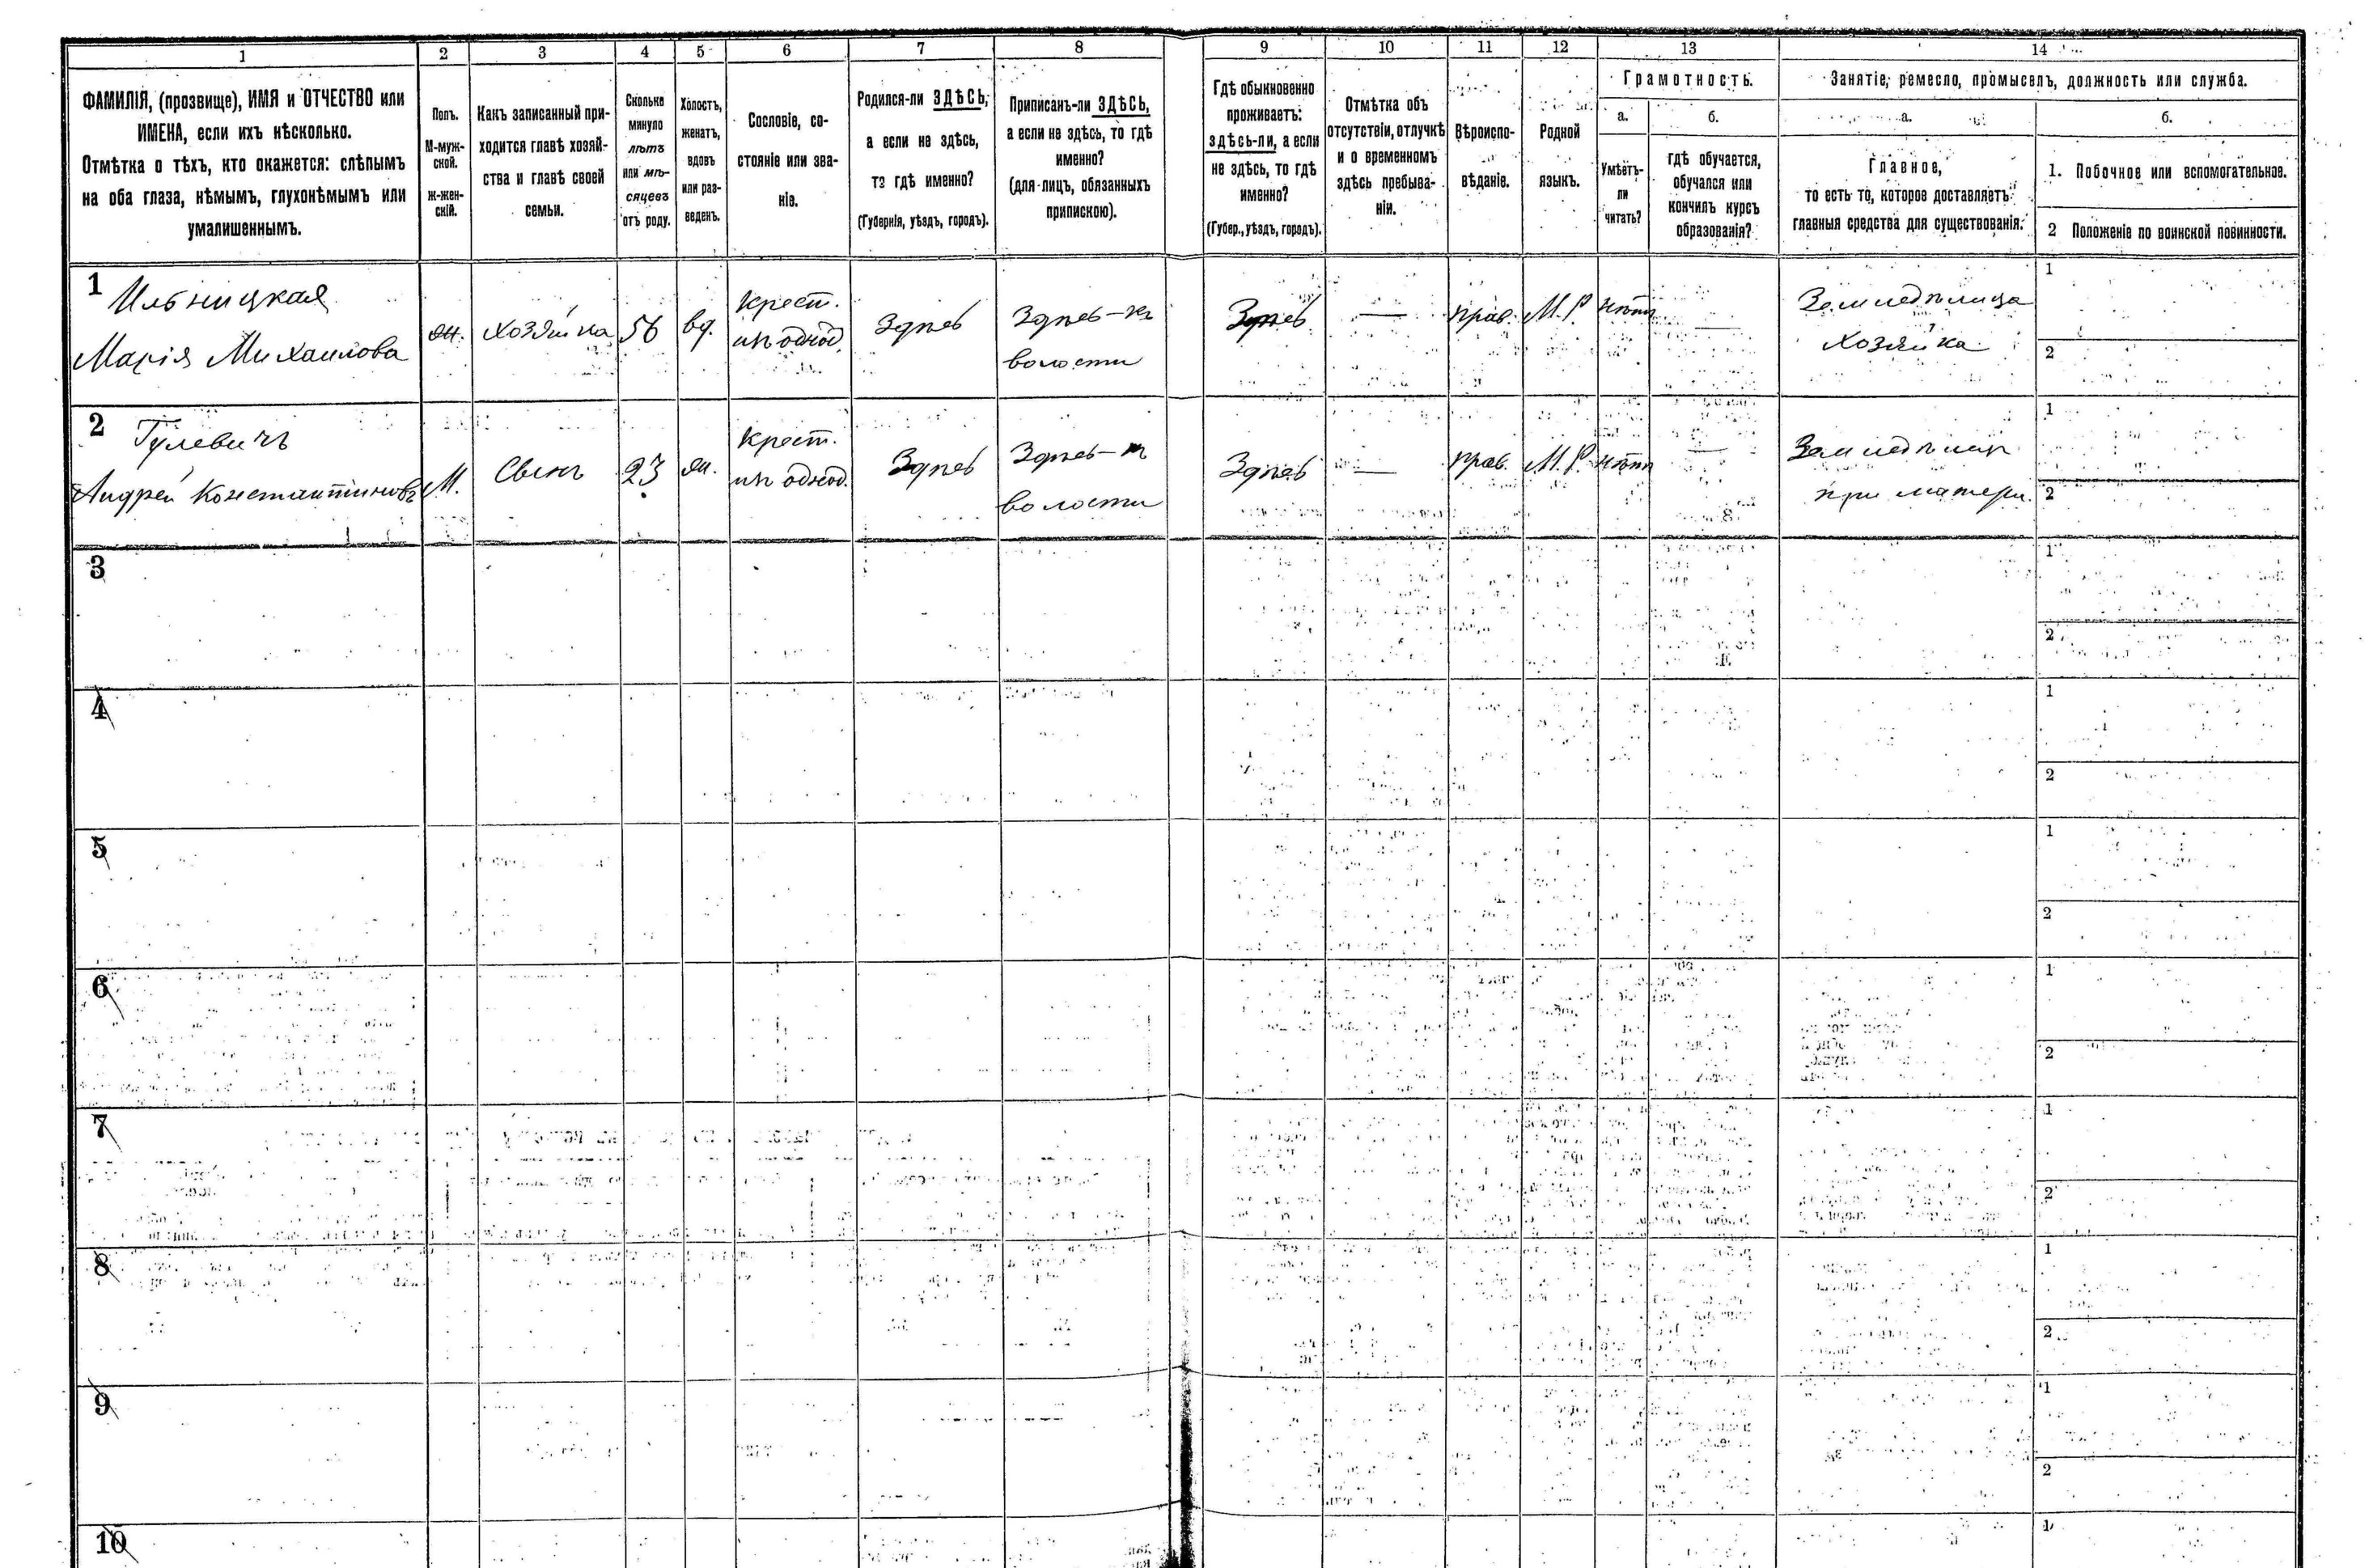 1 2 3 4 5 6 7 8 9 10 11 12 13 14
ФАМИЛІЯ, (прозвище), ИМЯ и ОТЧЕСТВО или
ИМЕНА, если ихъ нѣсколько.
Отмѣтка о тѣхъ, кто окажется: слѣпымъ
на оба глаза, нѣмымъ, глухонѣмымъ или
умалишеннымъ.
Полъ.
М-муж-
ской.
ж-жен-
скій.
Какъ записанный при-
ходится главѣ хозяй-
ства и главѣ своей
семьи.
Сколько
минуло
лѣтъ
или мѣ-
сяцевъ
отъ роду.
Холостъ,
женатъ,
вдовъ
или раз-
веденъ.
Сословіе, со-
стояніе или зва-
ніе.
Родился-ли ЗДѢСЬ,
а если не здѣсь,
то гдѣ именно?
(Губернія, уѣздъ, городъ).
Приписанъ-ли ЗДѢСЬ,
а если не здѣсь, то гдѣ
именно?
(для лицъ, обязанныхъ
припискою).
Гдѣ обыкновенно
проживаетъ:
здѣсь-ли, а если
не здѣсь, то гдѣ
именно?
(Губер., уѣздъ, городъ).
Отмѣтка объ
отсутствіи, отлучкѣ
и о временномъ
здѣсь пребыва-
ніи.
Вѣроиспо-
вѣданіе.
Родной
языкъ.
Грамотность.
а.
Умѣетъ-
ли
читать?
б.
гдѣ обучается,
обучался или
кончилъ курсъ
образованія?
Занятіе, ремесло, промыселъ, должность или служба.
а.
Главное,
то есть то, которое доставляетъ
главныя средства для существованія.
б.
1. Побочное или вспомогательное.
2 Положеніе по воинской повинности.
1
Ильницкая
Марія Михаилова
ж.
хозяйка
56
вд.
Крест.
изъ однод.
Здѣсь
Здѣсь-къ
волости
Здѣсь
—
прав.
М.Р.
нѣтъ
—
Земледѣлица
Хозяйка
1
2
2
Гулевичъ
Андрей Константиновъ
М.
Сынъ
23
ж.
Крест.
изъ однод.
Здѣсь
Здѣсь-
волости
Здѣсь
—
прав.
М.Р.
нѣтъ
—
Земледѣлецъ
при матери.
1
2
3
1
2
4
1
2
5
1
2
6
1
2
7
1
2
8
1
2
9
1
2
10
1